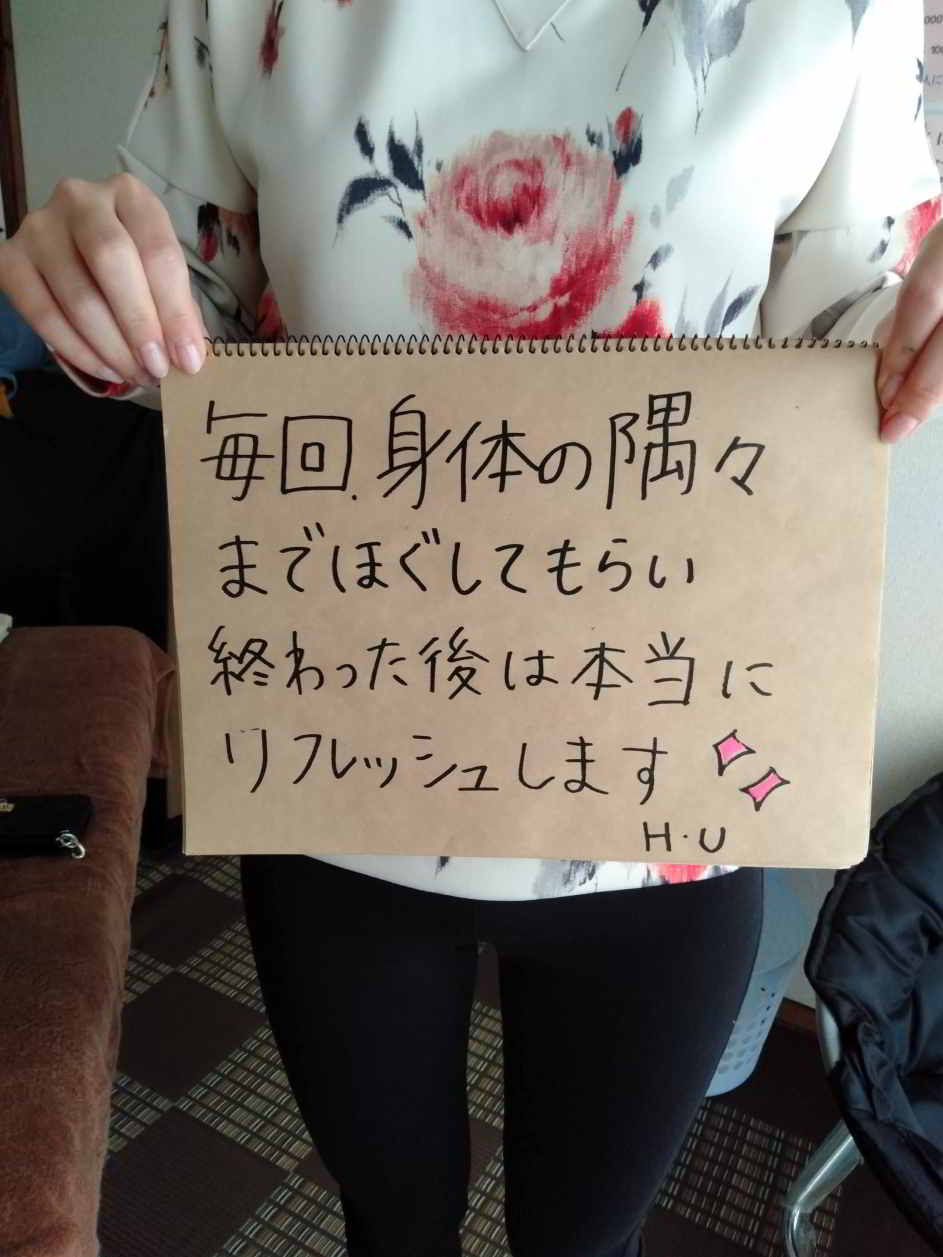 毎回、身体の隅々
までほぐしてもらい
終わった後は本当に
リフレッシュします
H・U